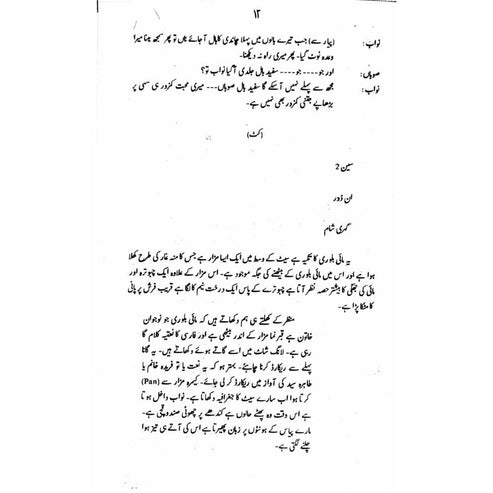 ۱۲
نواب : (پیار سے) جب تیرے بالوں میں پہلا چاندی کا بال آ جائے ناں تو پھر سمجھ لینا میرا
وعدہ ٹوٹ گیا۔ پھر میری راہ نہ دیکھنا۔
صوباں : اور جو---- جو---- سفید بال جلدی آ گیا نواب تو؟
نواب : مجھ سے پہلے نہیں آ سکے گا سفید بال صوباں--- میری محبت کمزور ہی سہی پر
بڑھاپے جتنی کمزور بھی نہیں ہے۔
(کٹ)
سین 2
ان ڈور
گہری شام
یہ مائی بلوری کا تکیہ ہے سیٹ کے وسط میں ایک ایسا مزار ہے جس کا منہ غار کی طرح کھلا
ہوا ہے اور اس میں مائی بلوری کے بیٹھنے کی جگہ موجود ہے۔ اس مزار کے علاوہ ایک چبوترہ اور
مائی کی جھگی کا بیشتر حصہ نظر آتا ہے چبوترے کے پاس ایک درخت نیم کا لگا ہے قریب فرش پر پانی
کا مٹکا پڑا ہے۔
منظر کے کھلتے ہی ہم دکھاتے ہیں کہ مائی بلوری جو نوجوان
خاتون ہے قبر نما مزار کے اندر بیٹھی ہے اور فارسی کا نعتیہ کلام گا
رہی ہے۔ لانگ شاٹ میں اسے گاتے ہوئے دکھاتے ہیں۔ یہ گانا
پہلے سے ریکارڈ کرنا چاہئے۔ بہتر ہو کہ یہ نعت یا تو فریدہ خانم یا
طاہرہ سید کی آواز میں ریکارڈ کر لی جائے۔ کیمرہ مزار سے (Pan)
کرتا ہوا اب سارے سیٹ کا جغرافیہ دکھاتا ہے۔ نواب داخل ہوتا
ہے اس وقت وہ پھٹے حالوں ہے کندھے پر چھوٹی صندوقچی ہے۔
مارے پیاس کے ہونٹوں پر زبان پھیرتا ہے اس کی آتے ہی تیز ہوا
چلنے لگتی ہے۔